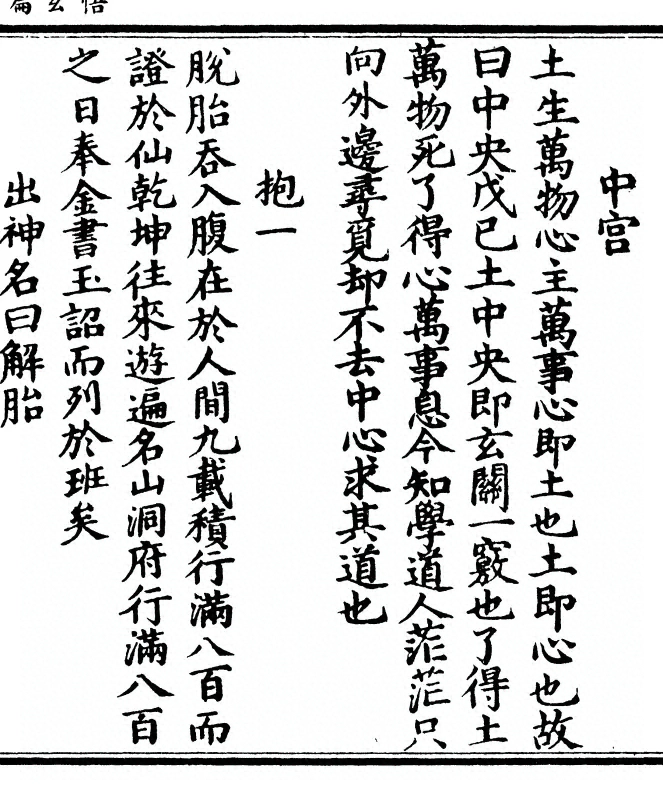 悟玄篇
中宫
土生萬物心主萬事心即土也土即心也故
曰中央戊巳土中央即玄關一竅也了得土
萬物死了得心萬事息今知學道人茫茫只
向外邊尋覓却不去中心求其道也
抱一
脫胎吞入腹在於人間九載積行滿八百而
證於仙乾坤往來遊遍名山洞府行滿八百
之日奉金書玉詔而列於班矣
出神名曰解胎